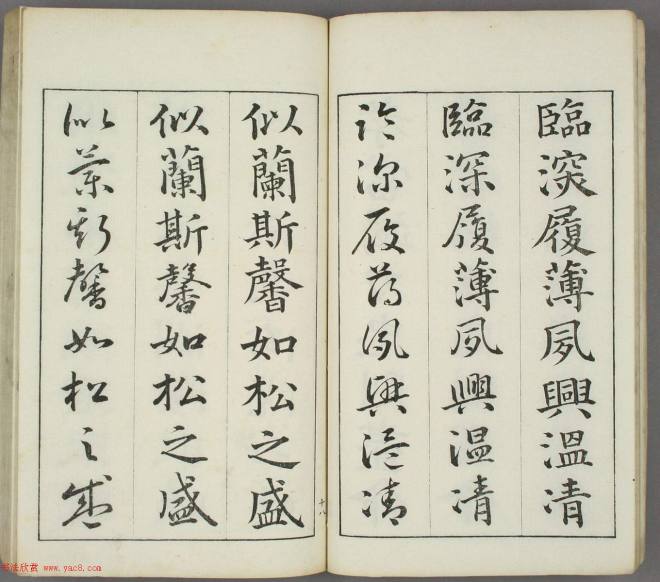 臨深履薄夙興温凊
臨深履薄夙興温凊
臨深履薄夙興温凊
似蘭斯馨如松之盛
似蘭斯馨如松之盛
似蘭斯馨如松之盛
十九
书法欣赏 www.yac8.com